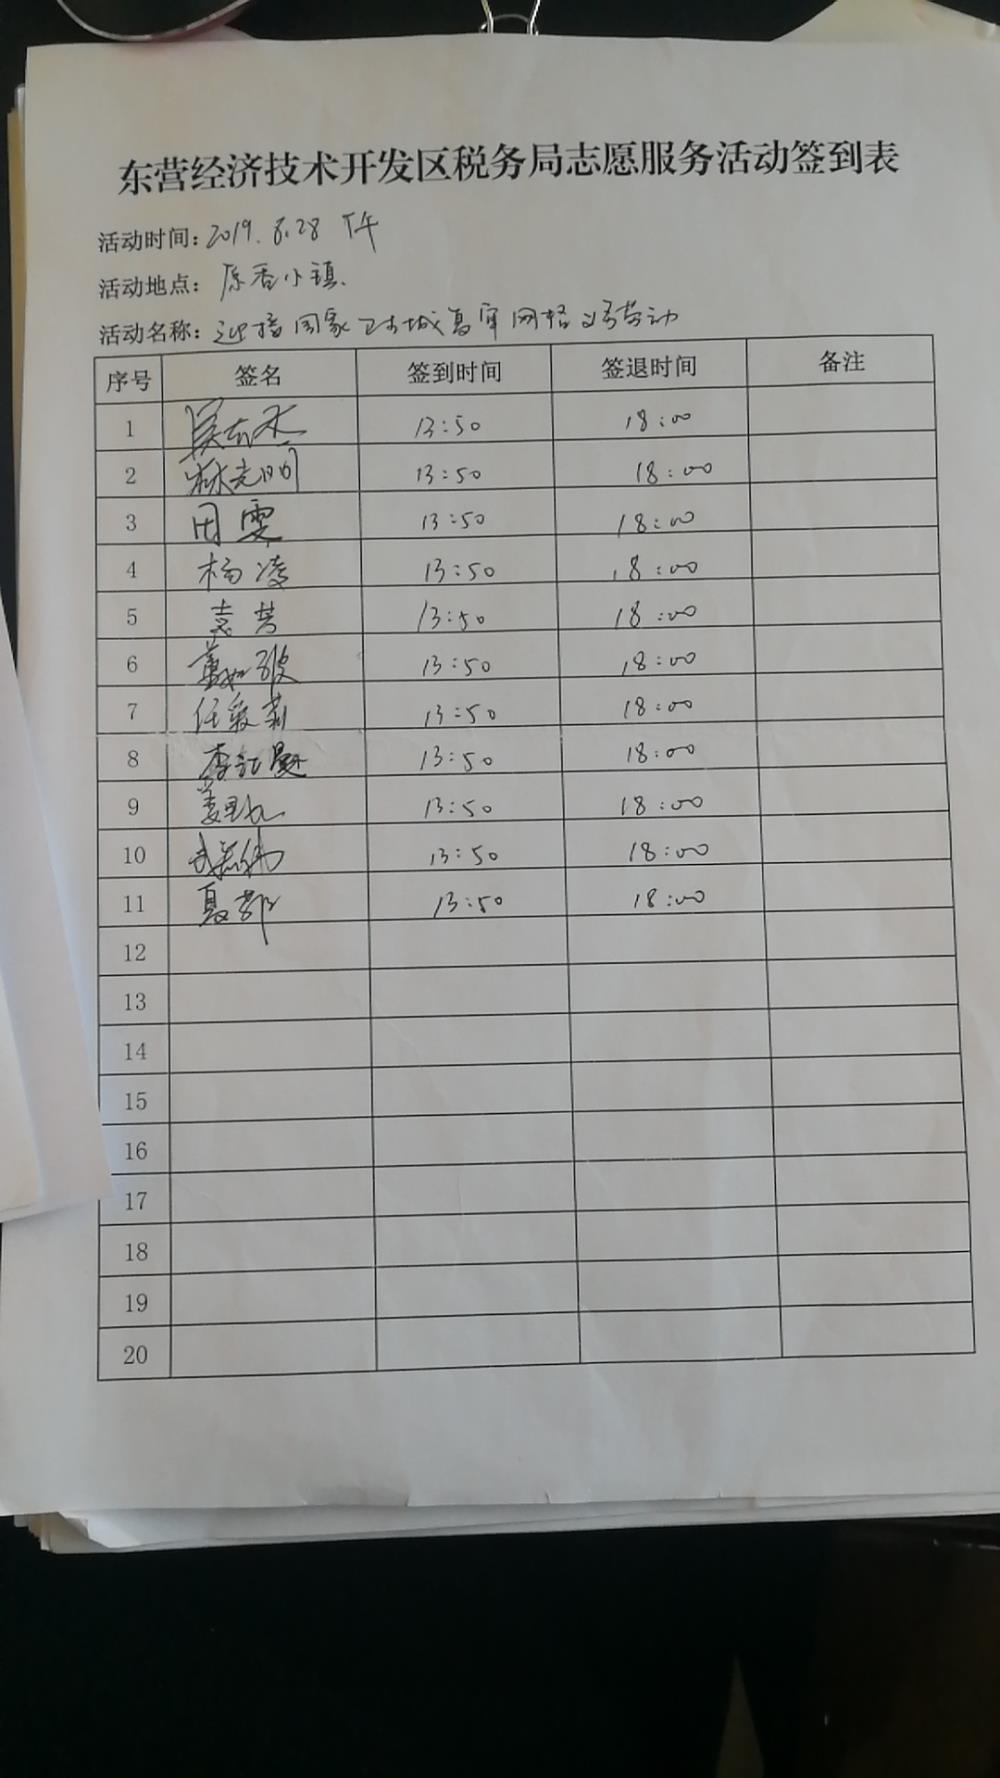 东营经济技术开发区税务局志愿服务活动签到表
活动时间：2019.8.28 下午
活动地点：原香小镇.
活动名称：迎接国家卫生城复审网格义务劳动
序号 签名 签到时间 签退时间 备注
1 13:50 18:00
2 林志明 13:50 18:00
3 田雯 13:50 18:00
4 杨凌 13:50 18:00
5 袁芳 13:50 18:00
6 13:50 18:00
7 任爱莉 13:50 18:00
8 13:50 18:00
9 13:50 18:00
10 13:50 18:00
11 13:50 18:00
12
13
14
15
16
17
18
19
20